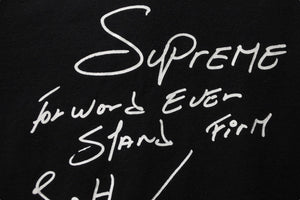 Supreme
Forword Ever
Stand Firm